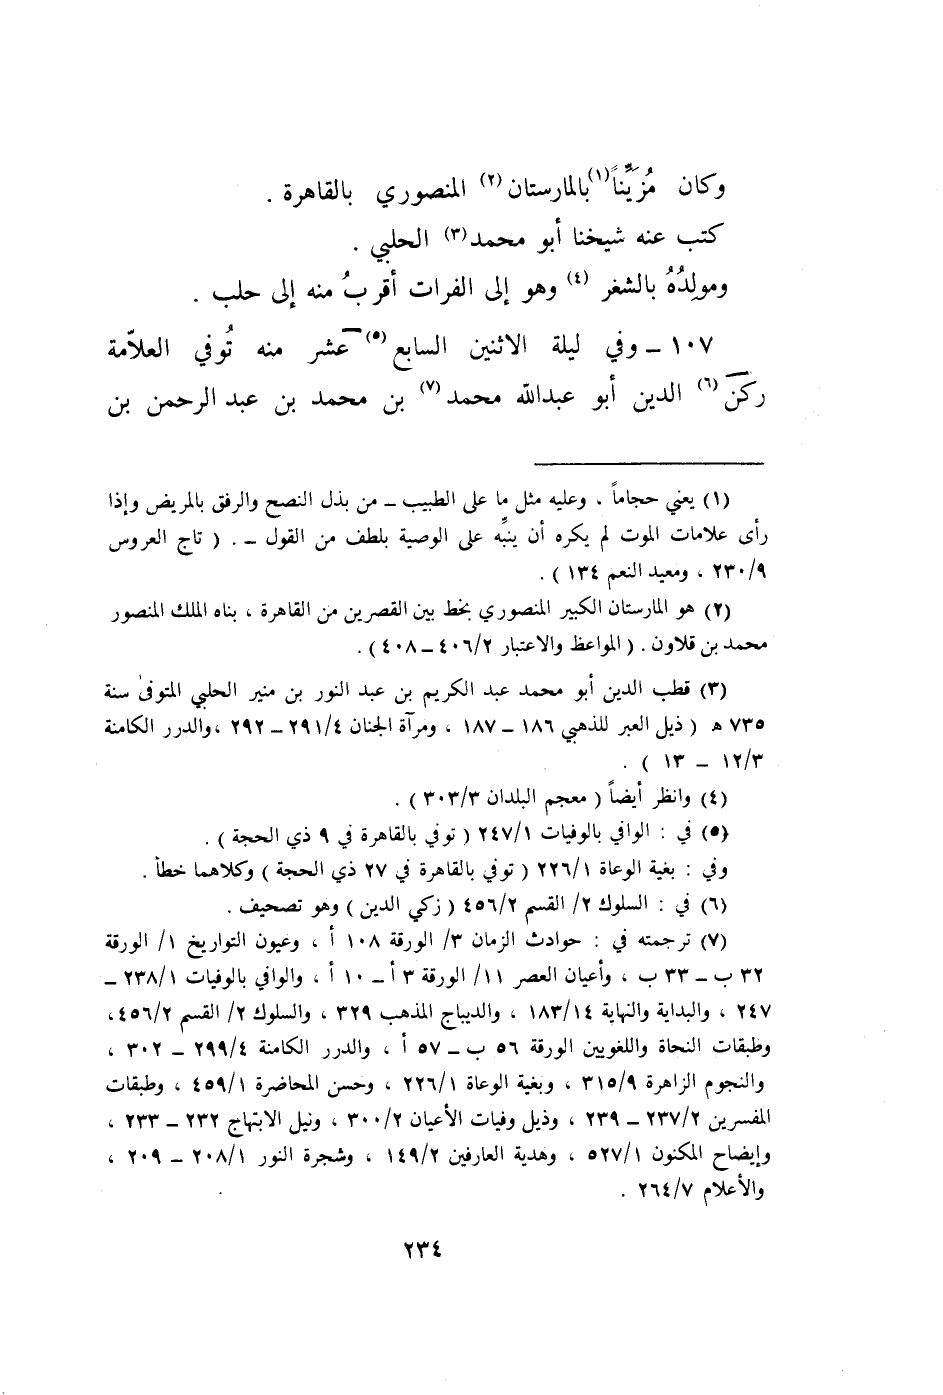 وكان مُزَيِّناً(١) بالمارستان(٢) المنصوري بالقاهرة .
كتب عنه شيخنا أبو محمد(٣) الحلبي .
ومولِدُهُ بالشغر (٤) وهو إلى الفرات أقربُ منه إلى حلب .
١٠٧ ــ وفي ليلة الاثنين السابع(٥) عشر منه تُوفي العلاّمة
ركن(٦) الدين أبو عبدالله محمد(٧) بن محمد بن عبد الرحمن بن
(١) يعني حجاماً ، وعليه مثل ما على الطبيب ــ من بذل النصح والرفق بالمريض وإذا
رأى علامات الموت لم يكره أن ينبِّه على الوصية بلطف من القول ــ . ( تاج العروس
٢٣٠/٩ ، ومعيد النعم ١٣٤ ) .
(٢) هو المارستان الكبير المنصوري بخط بين القصرين من القاهرة ، بناه الملك المنصور
محمد بن قلاون . ( المواعظ والاعتبار ٤٠٦/٢ ــ ٤٠٨ ) .
(٣) قطب الدين أبو محمد عبد الكريم بن عبد النور بن منير الحلبي المتوفىٰ سنة
٧٣٥ ه ( ذيل العبر للذهبي ١٨٦ ــ ١٨٧ ، ومرآة الجنان ٢٩١/٤ ــ ٢٩٢ ،والدرر الكامنة
١٢/٣ ــ ١٣ ) .
(٤) وانظر أيضاً ( معجم البلدان ٣٠٣/٣ ) .
(٥) في : الوافي بالوفيات ٢٤٧/١ ( توفي بالقاهرة في ٩ ذي الحجة ) .
وفي : بغية الوعاة ٢٢٦/١ ( توفي بالقاهرة في ٢٧ ذي الحجة ) وكلاهما خطأ .
(٦) في : السلوك ٢/ القسم ٤٥٦/٢ ( زكي الدين ) وهو تصحيف .
(٧) ترجمته في : حوادث الزمان ٣/ الورقة ١٠٨ أ ، وعيون التواريخ ١/ الورقة
٣٢ ب ــ ٣٣ ب ، وأعيان العصر ١١/ الورقة ٣ أ ــ ١٠ أ ، والوافي بالوفيات ٢٣٨/١ ــ
٢٤٧ ، والبداية والنهاية ١٨٣/١٤ ، والديباج المذهب ٣٢٩ ، والسلوك ٢/ القسم ٤٥٦/٢،
وطبقات النحاة واللغويين الورقة ٥٦ ب ــ ٥٧ أ ، والدرر الكامنة ٢٩٩/٤ ــ ٣٠٢ ،
والنجوم الزاهرة ٣١٥/٩ ، وبغية الوعاة ٢٢٦/١ ، وحسن المحاضرة ٤٥٩/١ ، وطبقات
المفسرين ٢٣٧/٢ ــ ٢٣٩ ، وذيل وفيات الأعيان ٣٠٠/٢ ، ونيل الابتهاج ٢٣٢ ــ ٢٣٣ ،
وإيضاح المكنون ٥٢٧/١ ، وهدية العارفين ١٤٩/٢ ، وشجرة النور ٢٠٨/١ ــ ٢٠٩ ،
والأعلام ٢٦٤/٧ .
٢٣٤